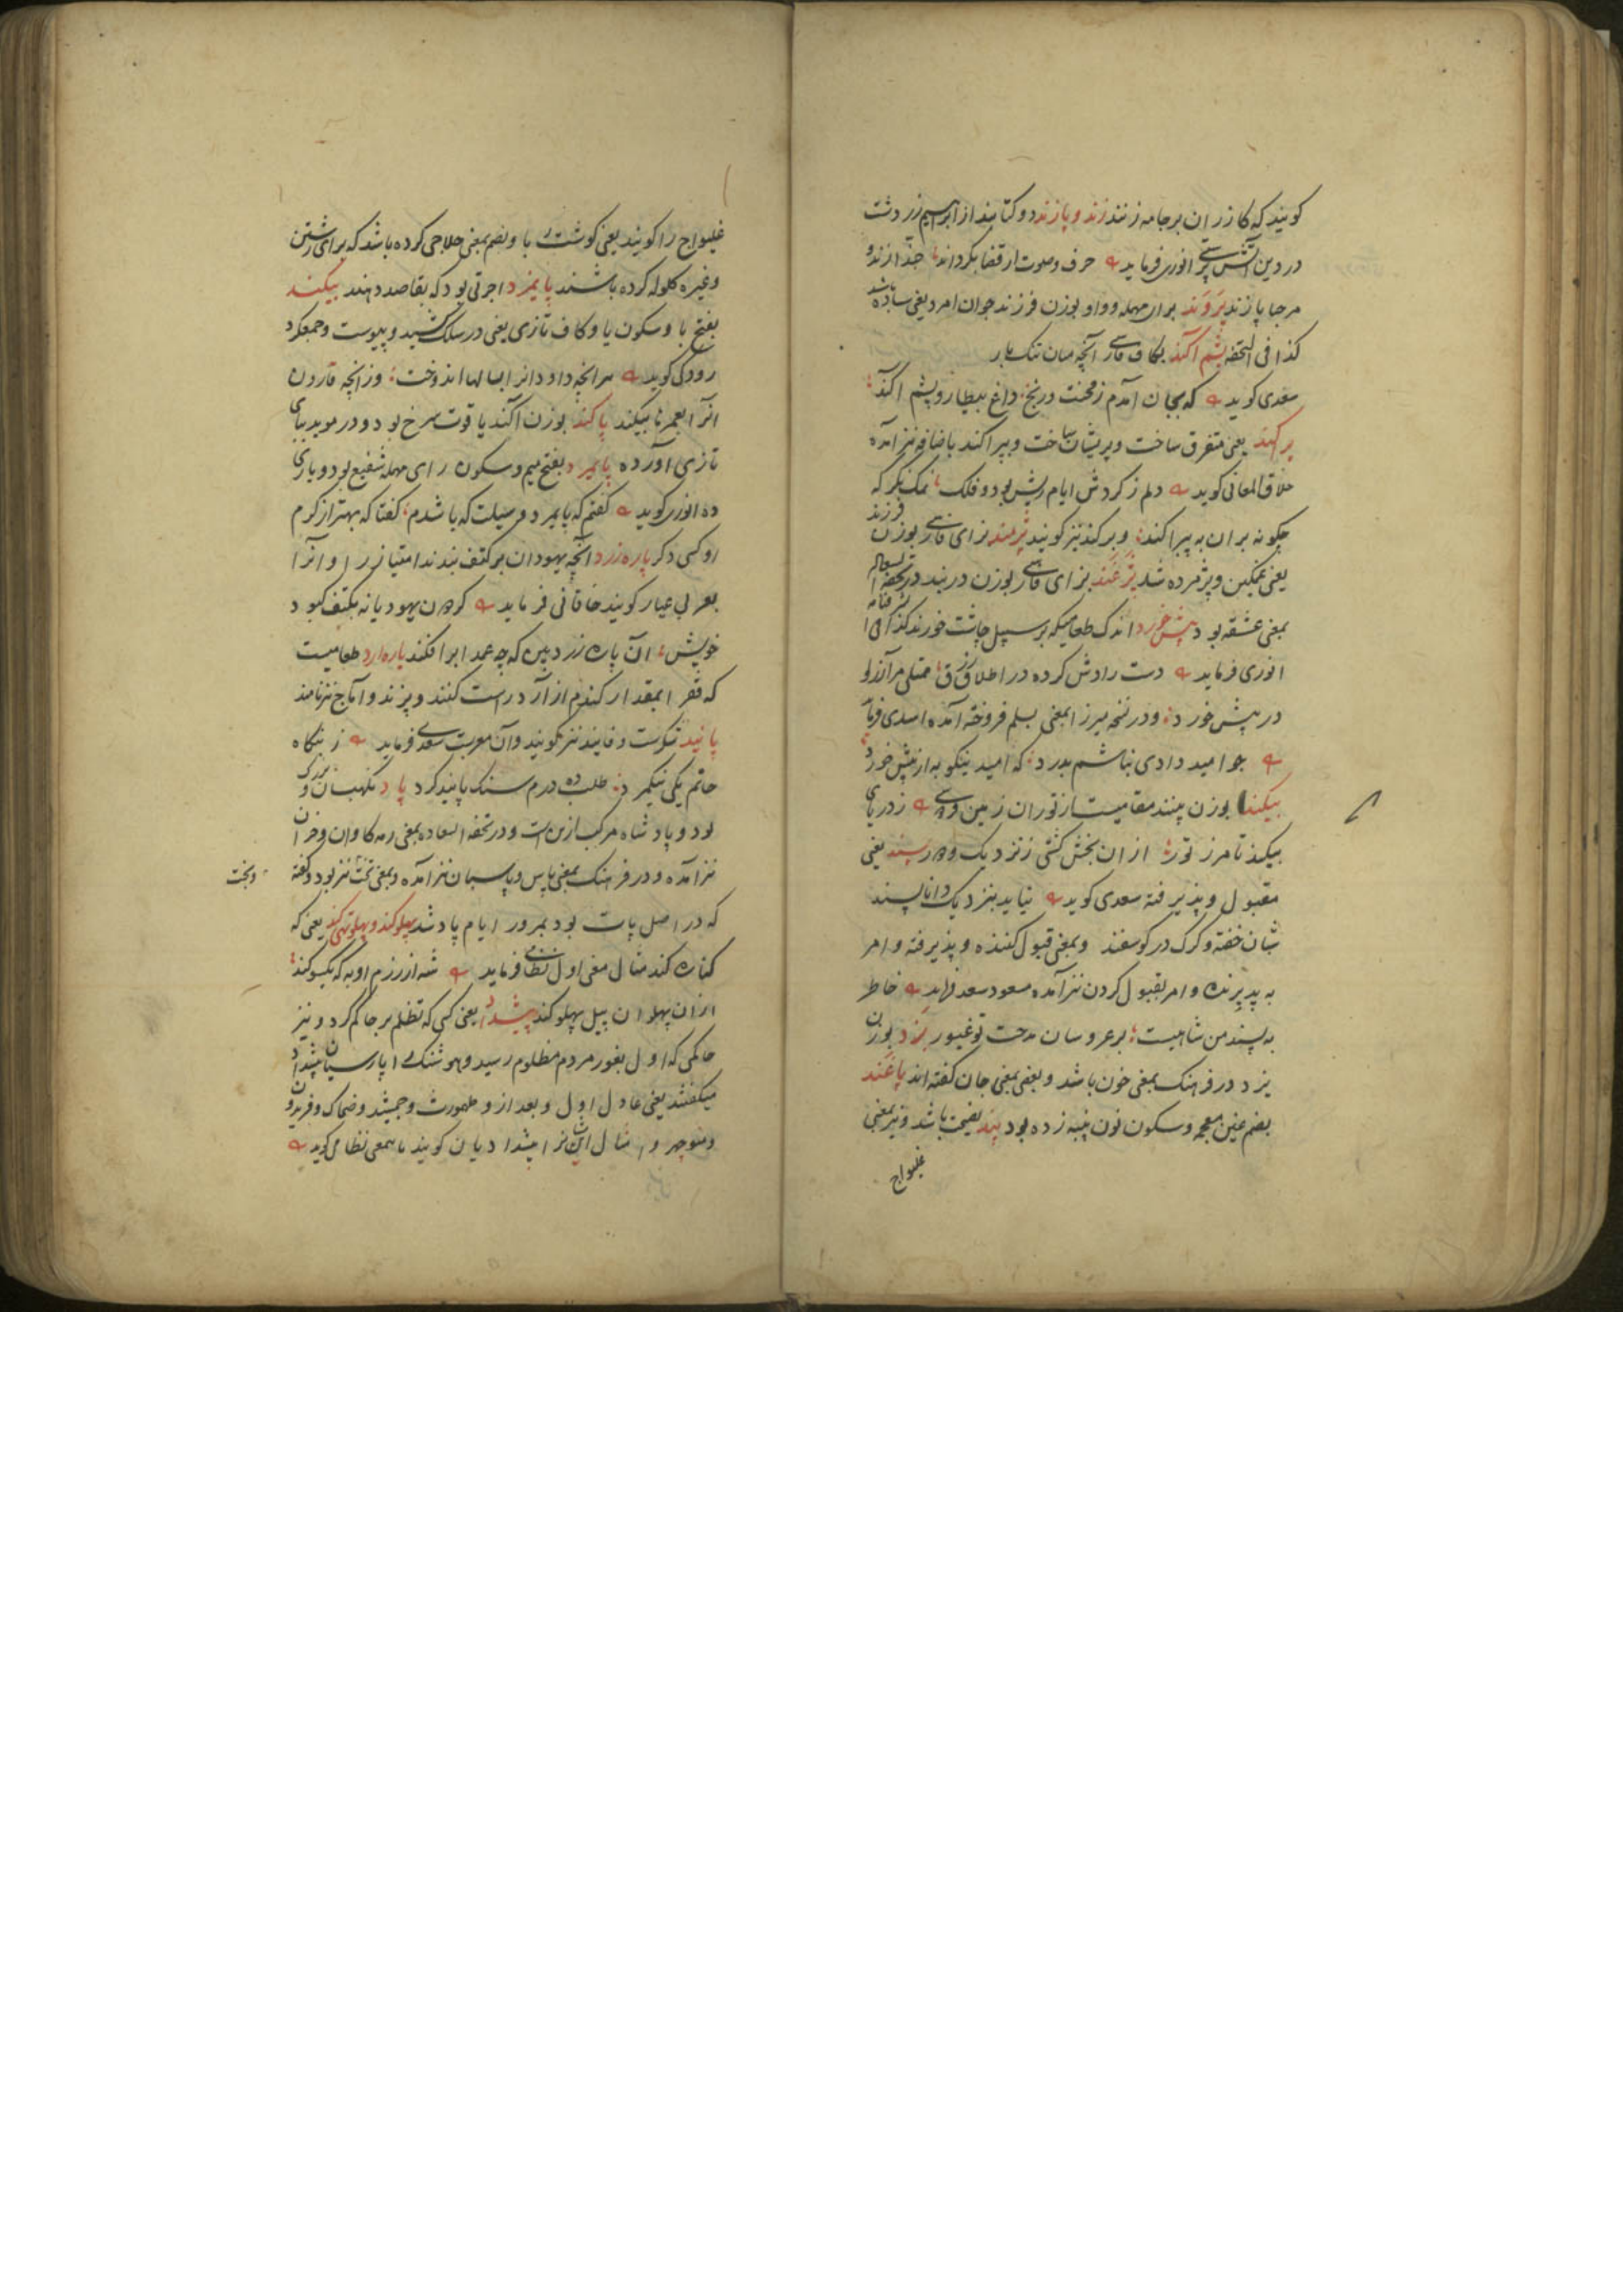 کویند که کازران بر جامه زنند زند و پازند دو کتابند از ابراهیم زردشت
در دین آتش پرستی انوری فرماید حرف وصوت ار قضا بکرداند جند ازند و
مرجا پازند پروند برای مهمله وواو بوزن فرزند جوان امرد یعنی ساده باشد
کذا فی التحفه پشم آکند بکاف فارسی آنچه میان تنک بار
سعدی کوید که بجان آمدم ز محنت ورنج داغ بیطار و پشم آکند
پرکند یعنی متفرق ساخت و پریشان ساخت و بپراکند باضافه نیز آمده
خلاق المعانی کوید دلم ز کردش ایام ریش بود و فلک نمک نکر که
چکونه بران به پیراکند و پرکند نیز کویند پژمند بزای فارسی بوزن فرزند
یعنی غمکین و پژمرده شد پژغند بزای فارسی بوزن دربند در تحفه السعاده
بمعنی عشقه بود پیش خورد اندک طعامیکه بر سبیل چاشت خورند کذا فی
انوری فرماید دست رادش کرده در اطلاق رزق ممتلی مر آز را
در پیش خورد ودر نسخه میرزا بمعنی بسلم فروخته آمده اسدی فرماید
چو امید دادی نباشم بدرد که امید نیکو به از پیش خورد
بیکند بوزن پسند مقامیست از توران زمین فردوسی ز دریای
بیکند تا مرز تور از ان بخش کیتی ز نزدیک و دور پسند یعنی
مقبول و پذیرفته سعدی کوید نیاید بنزدیک دانا پسند
شبان خفته و کرک در کوسفند وبمعنی قبول کننده و پذیرفته وامر
به پذیرنده وامر بقبول کردن نیز آمده مسعود سعد فرماید خاطر
به پسند من شاهیست بر عروسان مدحت تو غیور پزد بوزن
یزد در فرهنک بمعنی خون باشد و بعضی بمعنی جان کفته اند پاغند
بضم غین معجمه وسکون نون پنبه زده بود پند نصیحت باشد ونیز بمعنی
غلیواج
غلیواج را کویند یعنی کوشت ربا وبضم بمعنی حلاجی کرده باشد که برای رشتن
وغیره کلوله کرده باشند پایمزد اجرتی بود که بقاصد دهند بیکند
بفتح با وسکون یا وکاف تازی یعنی در سلک کشید و پیوست وجمع کرد
رودکی کوید هر انچه داود انرا بسالها اندوخت وز انچه قارون
انرا بعمرها بیکند پاکند بوزن آکند یاقوت سرخ بود ودر موید ببای
تازی آورده پایمرد بفتح میم وسکون رای مهمله شفیع بود ویاری
ده انوری کوید کفتم که پایمرد وسیلت که باشدم کفتا که بهتر از کرم
او کسی دکر پاره زرد آنچه یهودان بر کتف بندند امتیاز را و انرا
بعربی عیار کویند خاقانی فرماید کردون یهودیانه بکتف کبود
خویش آن پاره زرد بین که چه عمدا برافکند پاره آرد طعامیست
که فقرا بمقدار کندم از آرد راست کنند وپزند و اماج نیز نامند
پانید شکرست وفانید نیز کویند وآن معربست سعدی فرماید ز بنکاه
حاتم یکی نیکمرد طلب ده درم سنک پانید کرد پاد نکهبان و بزرک
بود و پادشاه مرکب ازین است ودر تحفه السعاده بمعنی رمه کاوان وخران
نیز آمده ودر فرهنک بمعنی پاس و پاسبان نیز آمده وبمعنی تخت نیز بود وکفته
وبخت
که در اصل پات بود بمرور ایام پاد شد پهلو کند و پهلو تهی کند یعنی که
کناره کند مثال معنی اول نظامی فرماید شه از رزم او به که یکسو کند
از ان پهلوان پیل پهلو کند پیشداد یعنی کسی که تظلم بر حاکم کرد ونیز
حاکمی که اول بغور مردم مظلوم رسید وهوشنک را پارسیان پیشداد
میکفتند یعنی عادل اول وبعد از و طهمورث وجمشید وضحاک وفریدون
ومنوچهر وامثال ایشان را پیشدادیان کویند باهمعنی نظامی کوید